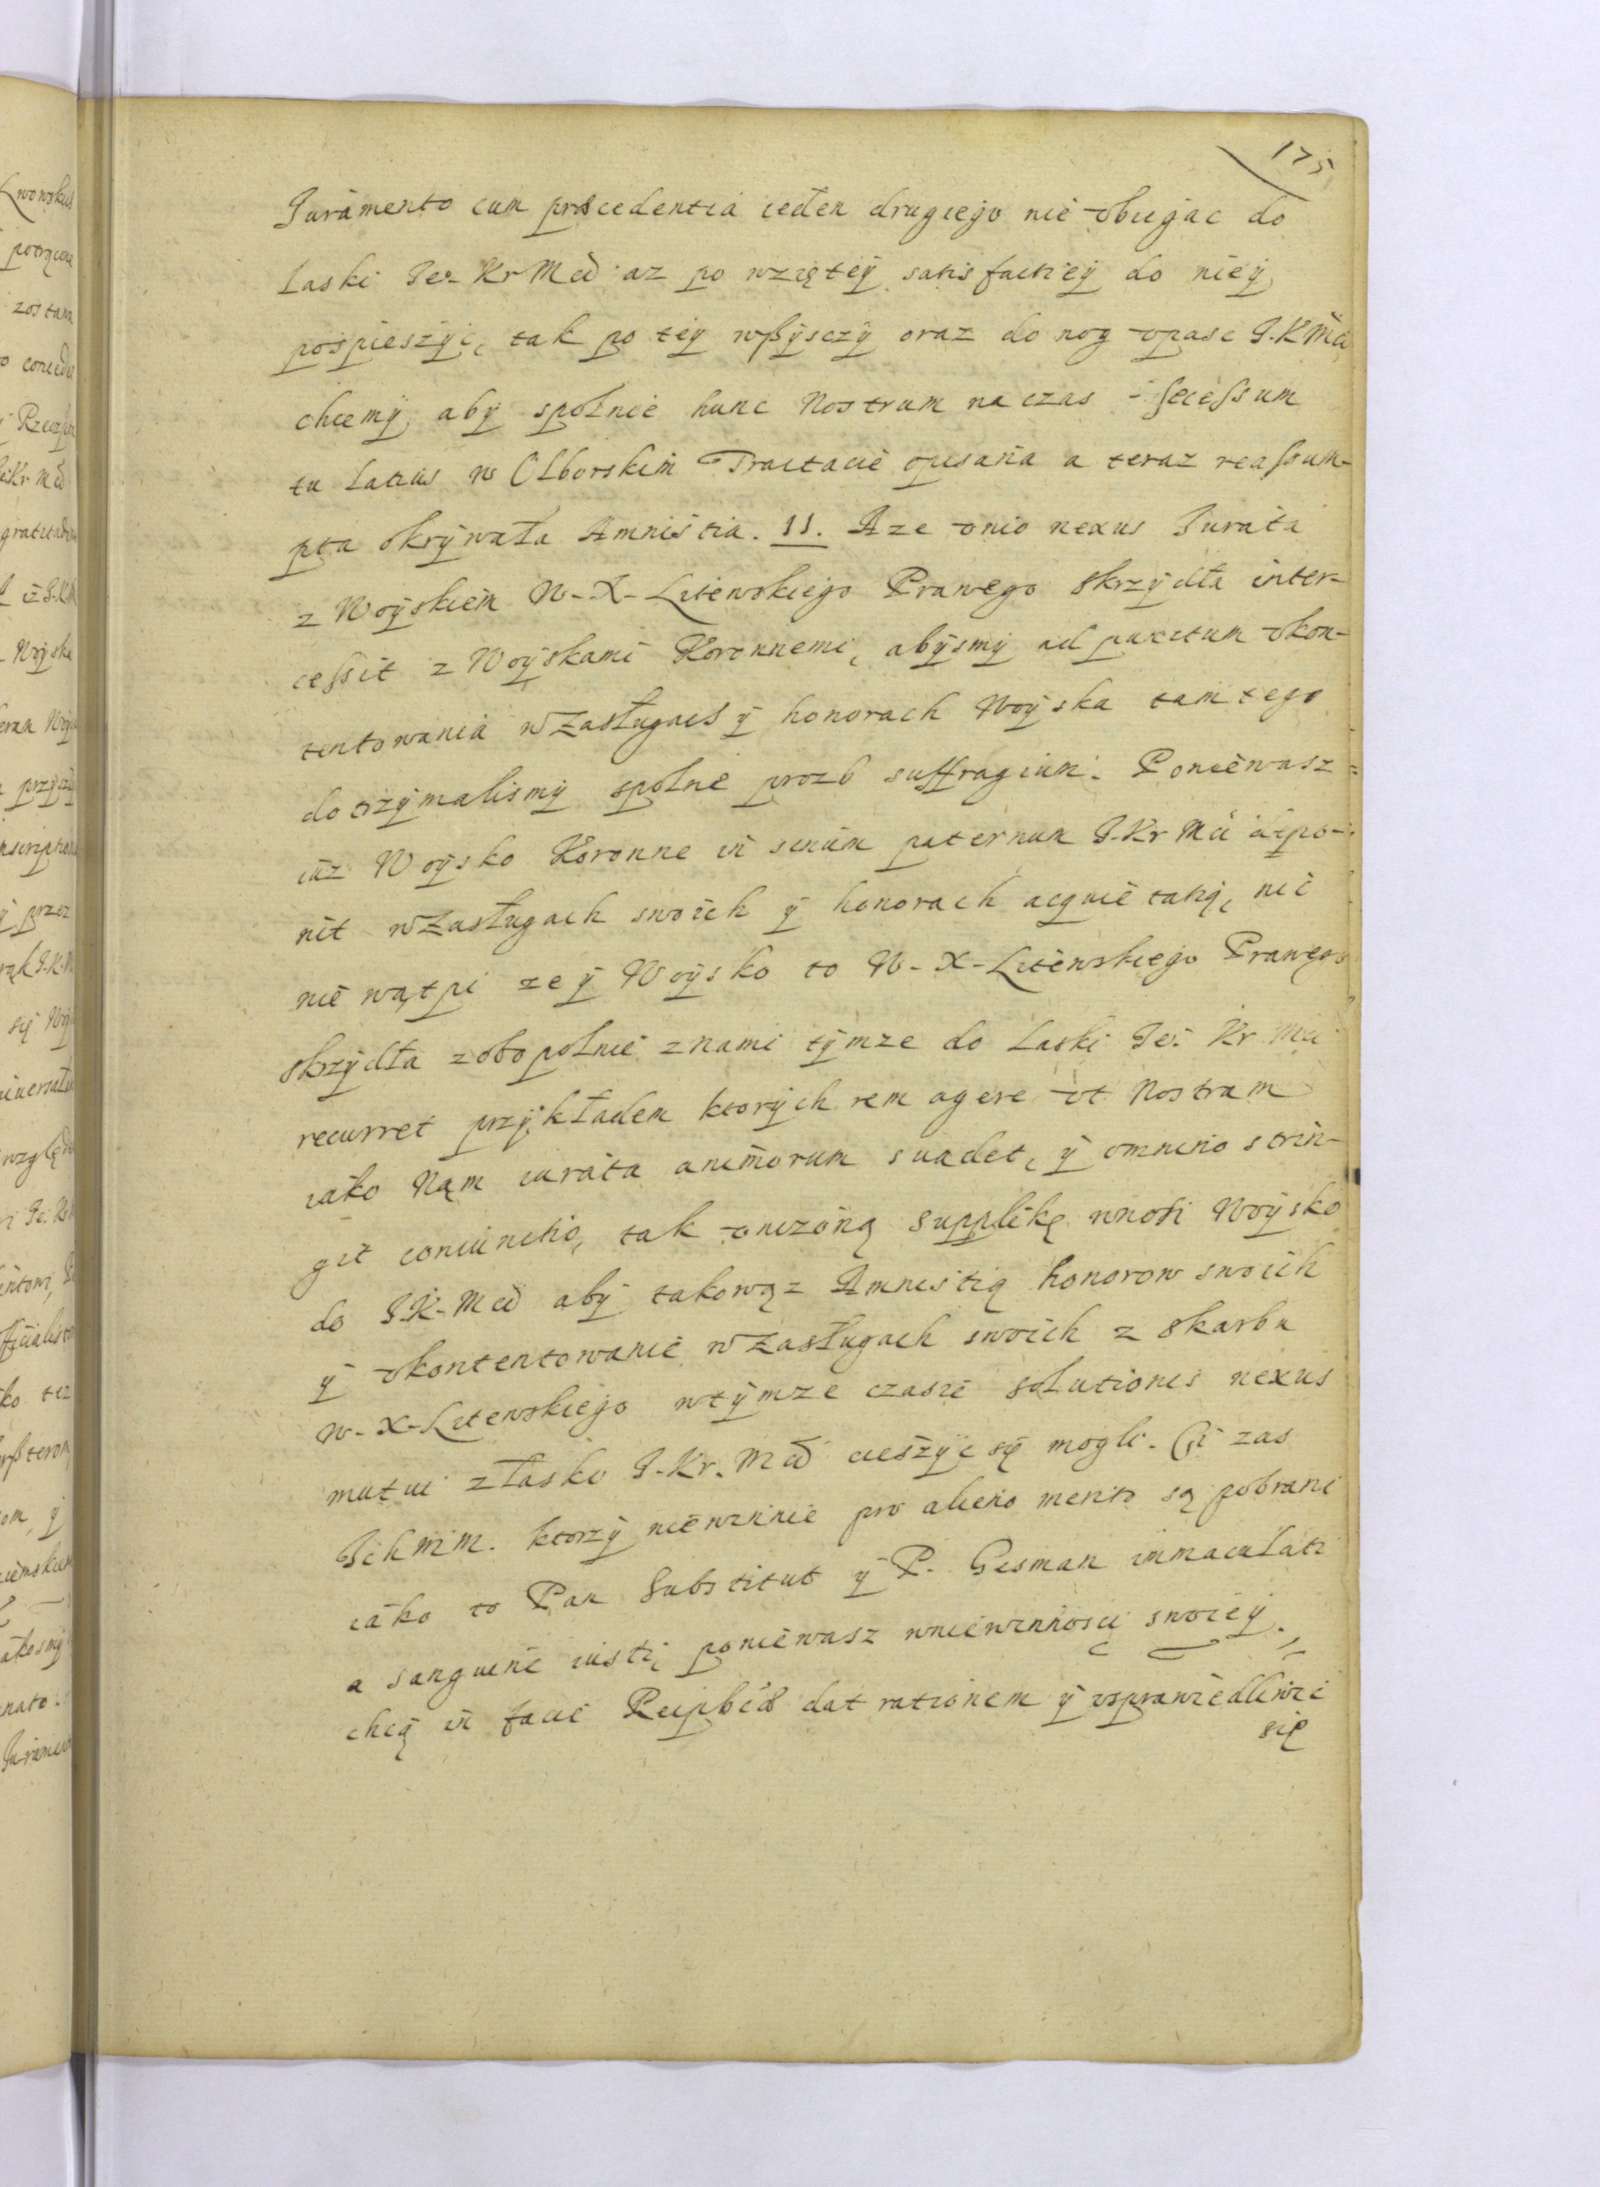 175
Juramento cum praecedentia ieden drugiego nie vbiegac do
Laski Je. Kr Mci az po wziętey satisfactiey do niey
pospieszyc, tak po tey wszysczy oraz do nog vpasc J.K Mci
chcemy, aby społnie hunc Nostrum na czas secessum
tu latius w Olborskim Tractacie opisana a teraz reassum-
pta okrywała Amnistia. 11. A ze vnio nexus Jurata
z Woyskiem W-X-Litewskiego Prawego skrzydła inter-
cessit z Woyskami Koronnemi, abysmy ad punctum vkon-
tentowania w Zasługach y honorach Woyska tamtego
dotrzymalismy spolne prozb suffragium. Poniewasz
iuz Woysko Koronne in sinum paternum J-Kr Mci depo-
nit w Zasługach swoich y honorach acquietatią, nic
nie wątpi ze y Woysko to W-X-Litewskiego Prawego
skrzydła zobopolnie z nami tymze do Laski Je. Kr Mci
recurret przykładem ktorych rem agere vt Nostram
iako Nam iurata animorum suadet, y omnino strin-
git coniunctio, tak vnizoną supplikę wnosi Woysko
do J.K-Mci aby takowąz Amnistią honorow swoich
y vkontentowanie w Zasługach swoich z skarbu
W-X-Litewskiego w tymze czasie solutionis nexus
mutui z łasko J-Kr. Mci cieszyc się mogli. Ci zas
Ichmm. ktorzy niewinnie pro alieno merito są pobrani
iako to Pan Substitut y P. Gisman immaculati
a sanguine iusti, poniewasz w niewinnosci swoiey
chcą in facie Reipbcae dat rationem y vsprawiedliwic
się